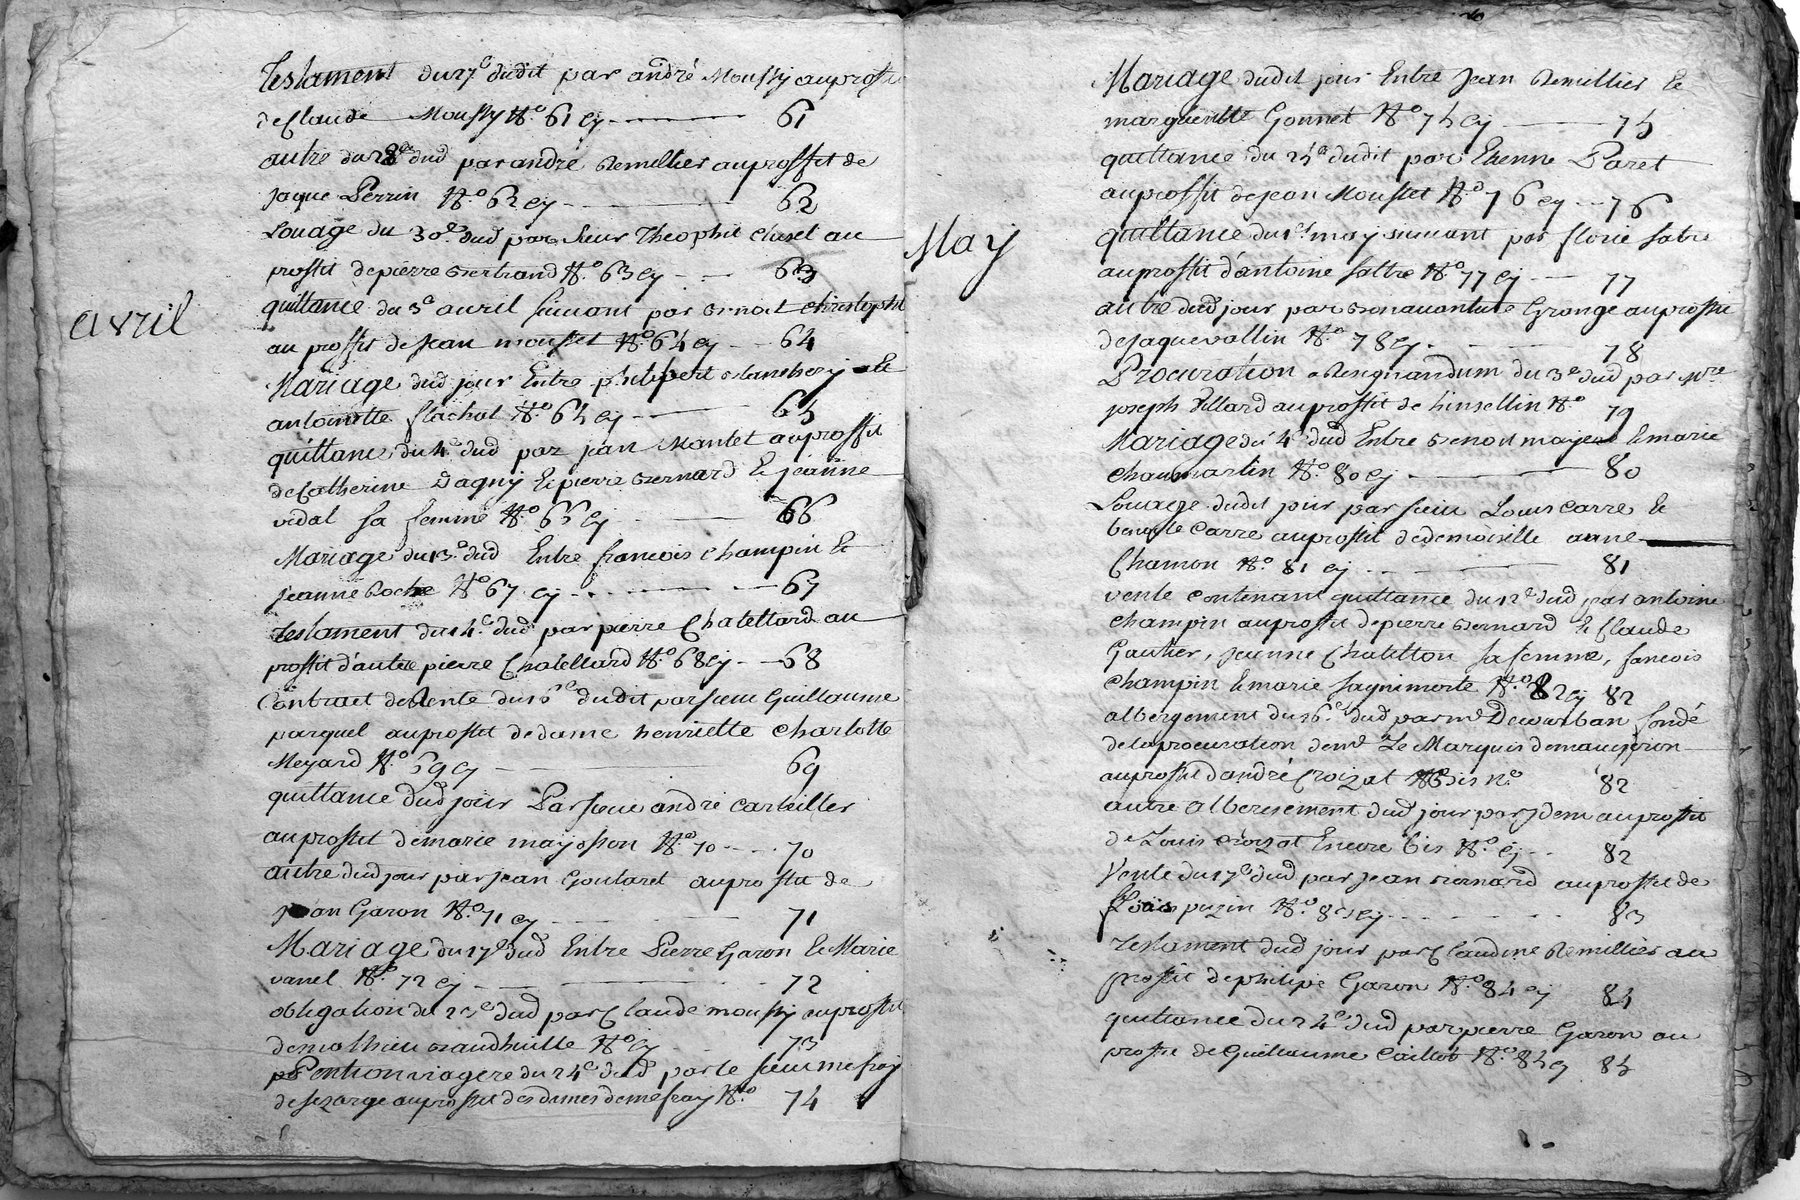 Testament du 27e dudit par andré Moussy au proffit
de Claude Moussy No. 61 cy 61
autre du 28e dud par andré Remillier au proffit de
Jaque Perrin No. 62 cy 62
Louage du 30e dud par sieur Theophile Clusel au
proffit de pierre Bertrand No. 63 cy 63
avril
quittance du 3e avril suivant par Benoit Christophe
au proffit de Jean mousset No 64 cy 64
Mariage dud jour Entre philipert et
antoinette flachat No 65 cy 65
quittance du 4e dud par jean Mantet au proffit
de Catherine Dagny & pierre Bernard & jeanine
vidal sa femme No. 66 cy 66
Mariage du 13e dud Entre francois champin &
jeanne Roche No 67 cy 67
Testament du 14e dud par pierre Chatellard au
proffit d'autre pierre Chatellard No. 68 cy 68
Contract de Rente du dudit par sieur Guillaume
parquel au proffit de dame henriette charlotte
Meyard No. 69 cy 69
quittance dud jour Par sieur andré
au proffit de marie mayosson No 70 70
autre dud jour par jean Goutaret au proffit de
jean Garon No. 71 cy 71
Mariage du 17e dud Entre Pierre Garon & Marie
vanel No. 72 cy 72
obligation du dud par Claude moussy au proffit
de mathieu No cy 73
pention viagere du 24e dud par le sieur mefray
de sezarge au proffit des dames de mefray No 74
Mariage dudit jour Entre Jean Remillier &
margueritte Gonnet No 75 cy 75
quittance du 25e dudit par Etienne Paret
au proffit de jean Mousset No. 76 cy 76
May
quittance du 1er may suivant par florie sabre
au proffit d'antoine sattre No 77 cy 77
autre dud jour par Bonavanture Grange au proffit
de Jaque vallin No 78 cy 78
Procuration ad Resignandum du 3e dud par Mre
joseph Villard au proffit de hinsellin No 79
Mariage du 4e dud Entre Benoit mayere & marie
Chaumartin No. 80 cy 80
Louage dudit jour par sieur Louis Carre &
Carre au proffit de demoiselle anne
Chamon No. 81 cy 81
vente contenant quittance du 12e dud par antoine
champin au proffit de pierre Bernard & Claude
Gautier, jeanne Chatillon sa femme, francois
champin & marie No. 82 cy 82
albergement du 16e dud par mr Dewurban fondé
de la procuration de mr Le Marquis de maugiron
au proffit d'andré Croizat bis no 82
autre albergement dud jour par jdem au proffit
de Louis Croizat Encore bis No. cy 82
Vente du 17e dud par jean Bernard au proffit de
Louis puzin No. 83 cy 83
Testament dud jour par Claudine Remillier au
proffit de philipe Garon No. 84 cy 84
quittance du 24e dud par pierre Garon au
proffit de Guillaume Caillot No. 85 cy 85